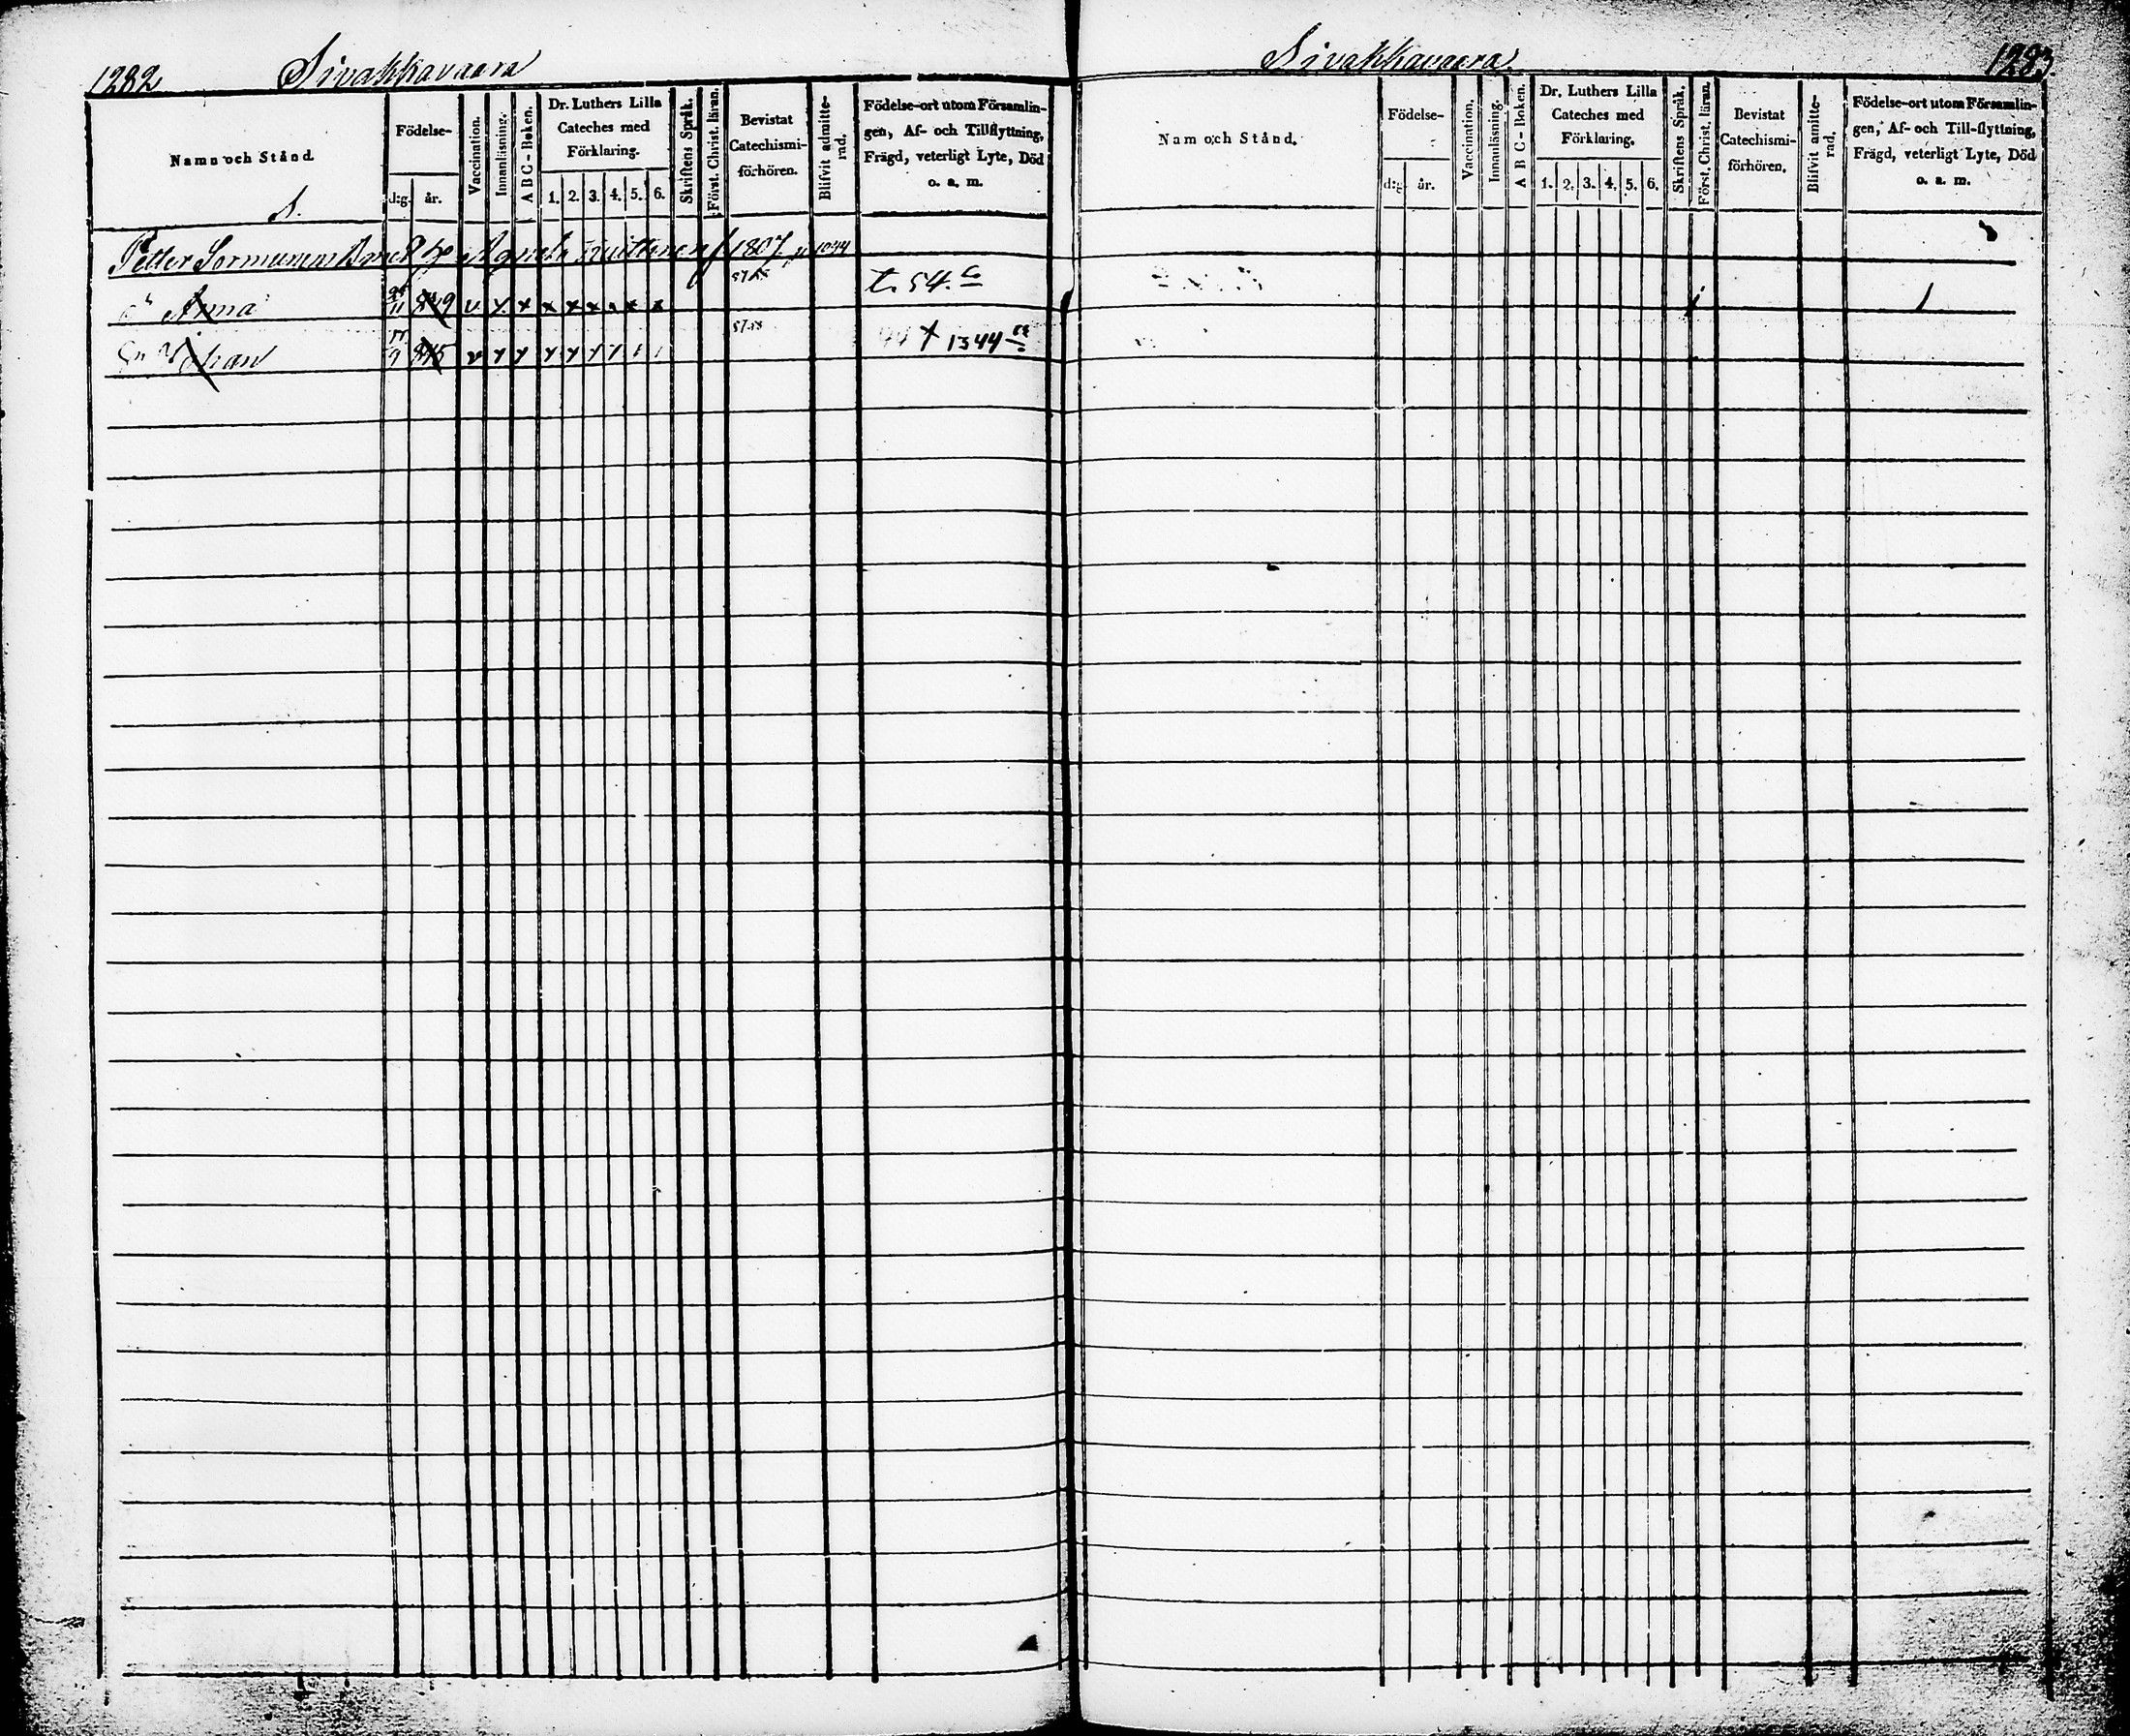 1282 Sivakkavaara
Namn och Stånd
Födelse-
d:g. år.
Vaccination.
Innanläsning.
A B C - Boken.
Dr. Luthers Lilla
Cateches med
Förklaring.
1. 2. 3. 4. 5. 6.
Skriftens Språk.
Först. Christ. läran.
Bevistat
Catechismi-
förhören.
Blifvit admitte-
rad.
Födelse-ort utom Församlin-
gen, Af- och Tillflyttning,
Frägd, veterligt Lyte, Död
o. a. m.
S.
Petter Sormunens Agneta 1807 1044
Anna 11 849 v x x x x x x x x 57.58 t. 54.
Johan 9 845 v 57.58 1344
Sivakkavaara 1283
Nam och Stånd.
Födelse-
d:g. år.
Vaccination.
Innanläsning.
A B C - Boken.
Dr. Luthers Lilla
Cateches med
Förklaring.
1. 2. 3. 4. 5. 6.
Skriftens Språk.
Först. Christ. läran.
Bevistat
Catechismi-
förhören.
Blifvit amitte-
rad.
Födelse-ort utom Församlin-
gen, Af- och Till-flyttning,
Frägd, veterligt Lyte, Död
o. a. m.